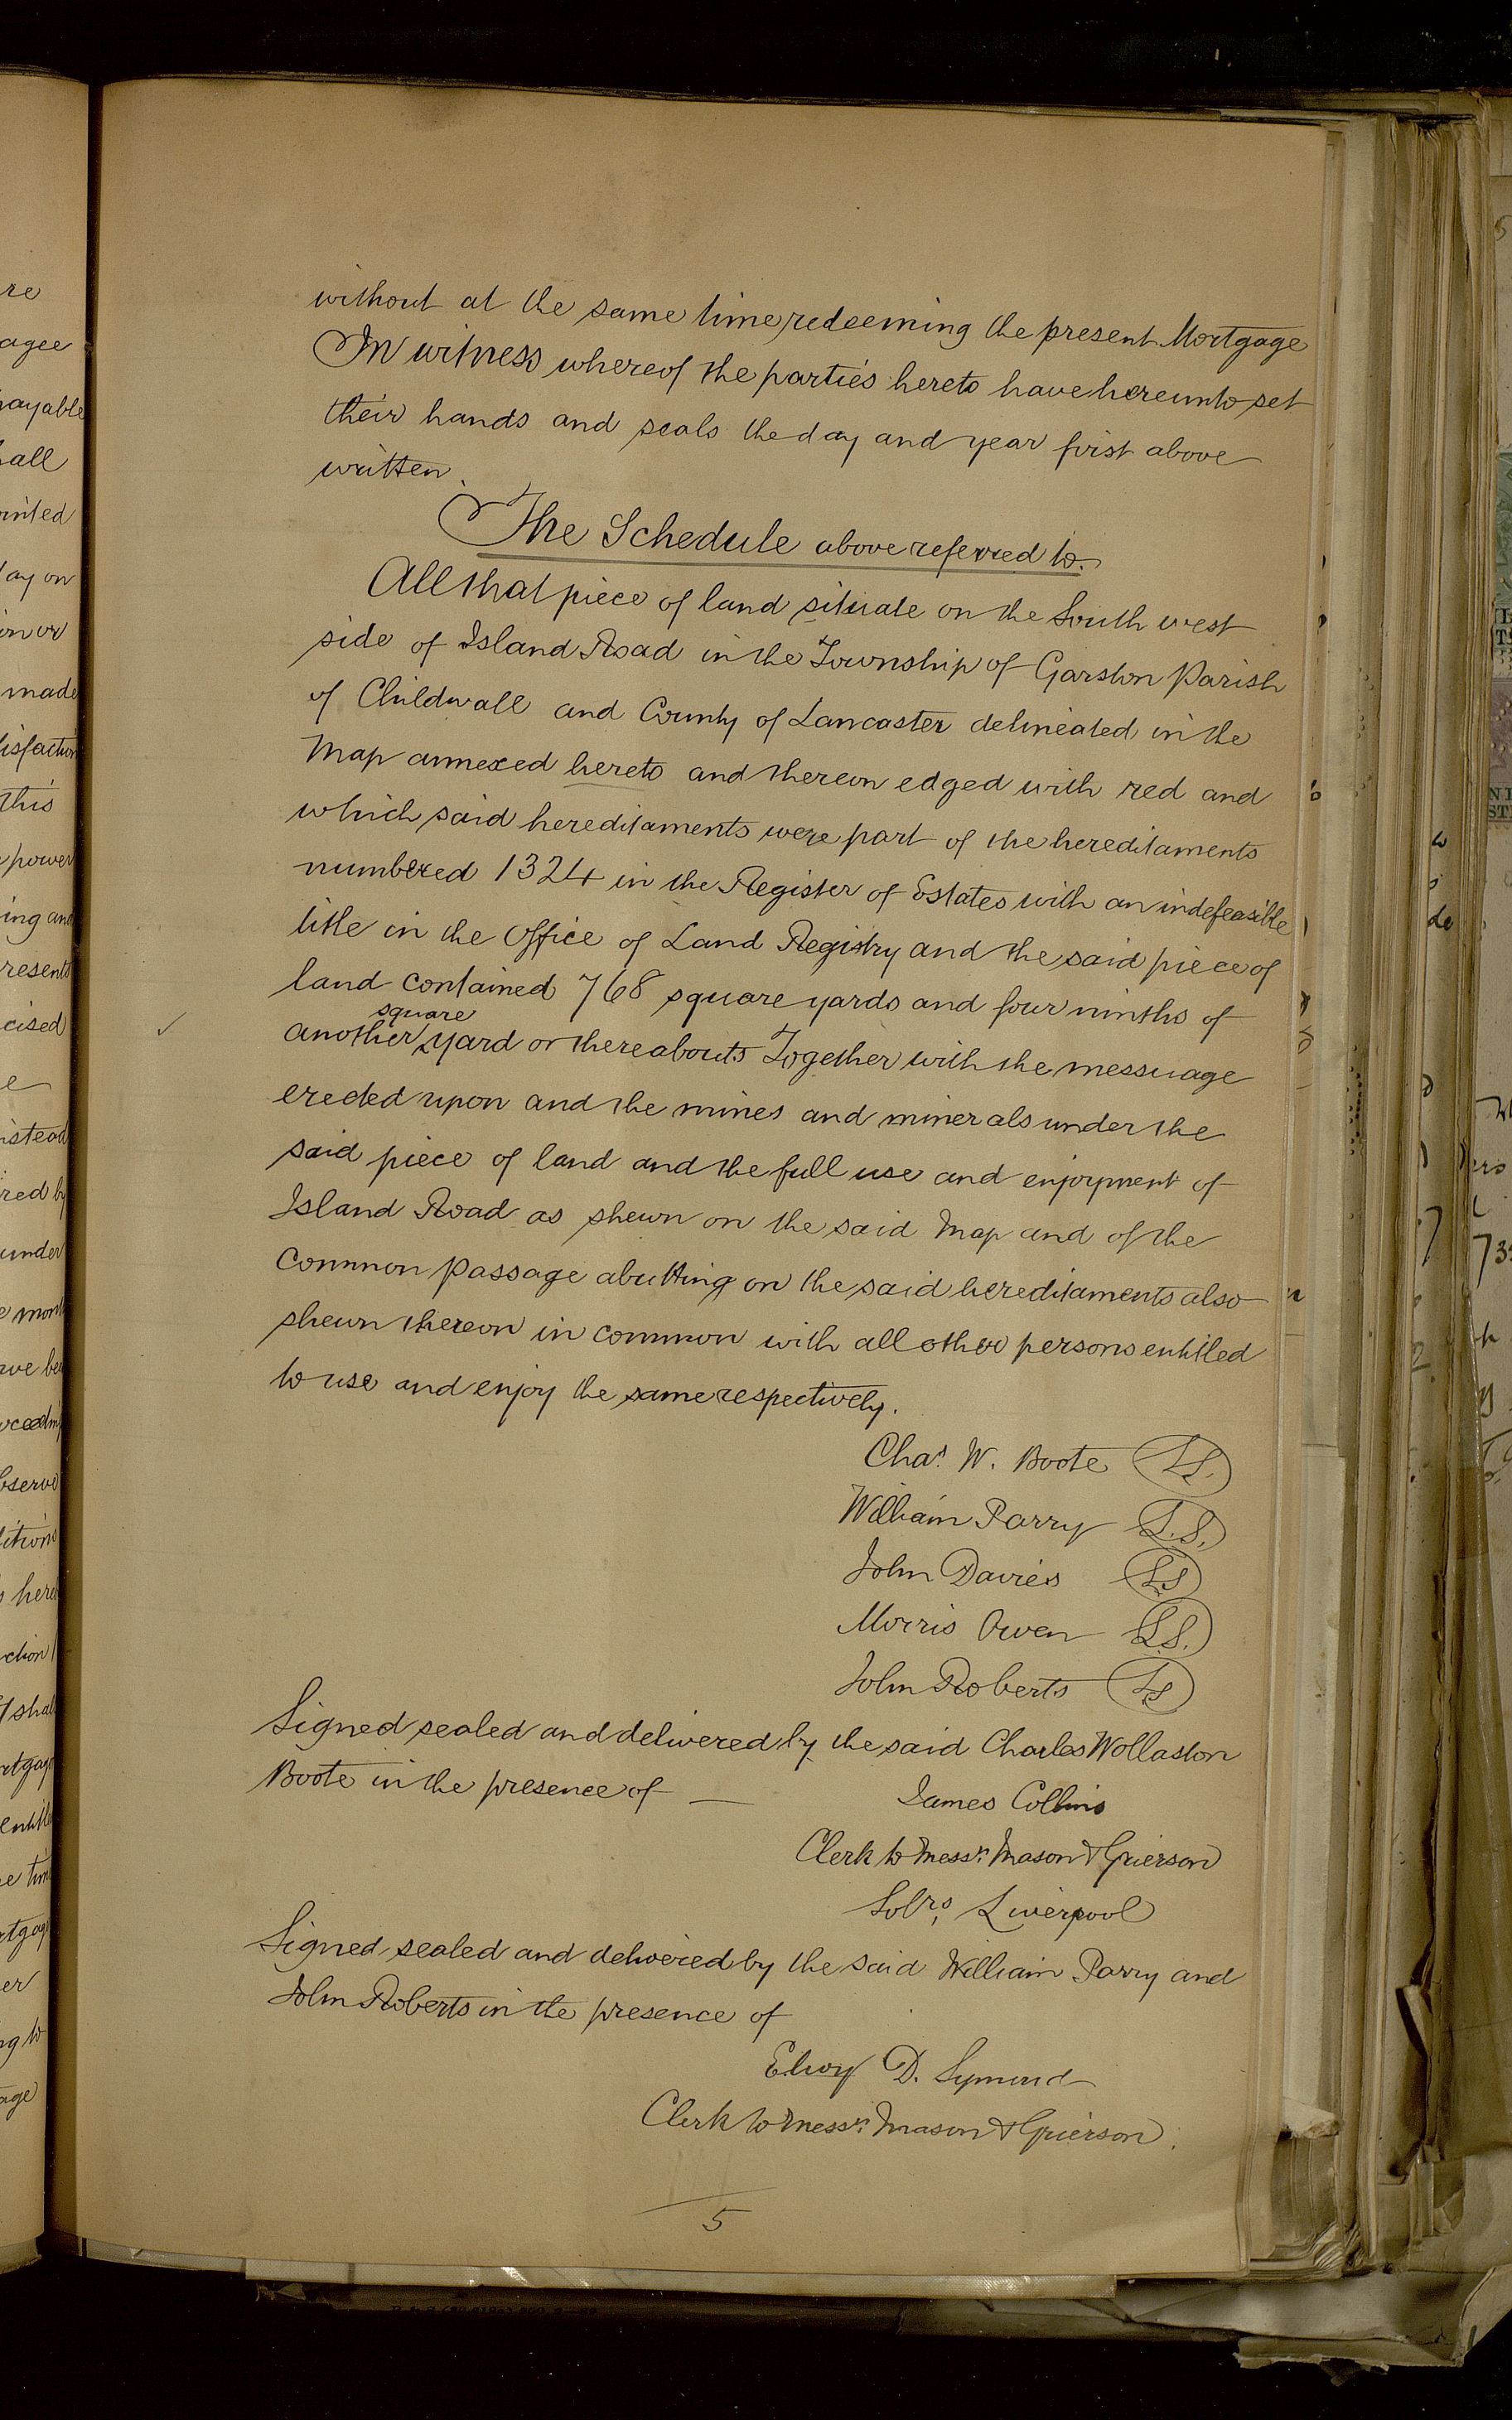 without at the same time redeeming the present Mortgage
In witness whereof the parties hereto have hereunto set
their hands and seals the day and year first above
written.
The Schedule above referred to.
All that piece of land situate on the South west
side of Island Road in the Township of Garston Parish
of Childwall and County of Lancaster delineated in the
Map annexed hereto and thereon edged with red and
which said hereditaments were part of the hereditaments
numbered 1324 in the Register of Estates with an indefeasible
title in the Office of Land Registry and the said piece of
land contained 768 square yards and four ninths of
✓
another square yard or thereabouts Together with the messuage
erected upon and the mines and minerals under the
said piece of land and the full use and enjoyment of
Island Road as shewn on the said Map and of the
Common passage abutting on the said hereditaments also
shewn thereon in common with all other persons entitled
to use and enjoy the same respectively.
Chas. W. Boote L.S.
William Parry L.S.
John Davies LS
Morris Owen L.S.
John Roberts LS
Signed sealed and delivered by the said Charles Wollaston
Boote in the presence of —
James Collins
Clerk to Messrs. Mason & Grierson
Solrs, Liverpool
Signed sealed and delivered by the said William Parry and
John Roberts in the presence of
Elwy D. Symond
Clerk to Messrs. Mason & Grierson.
5